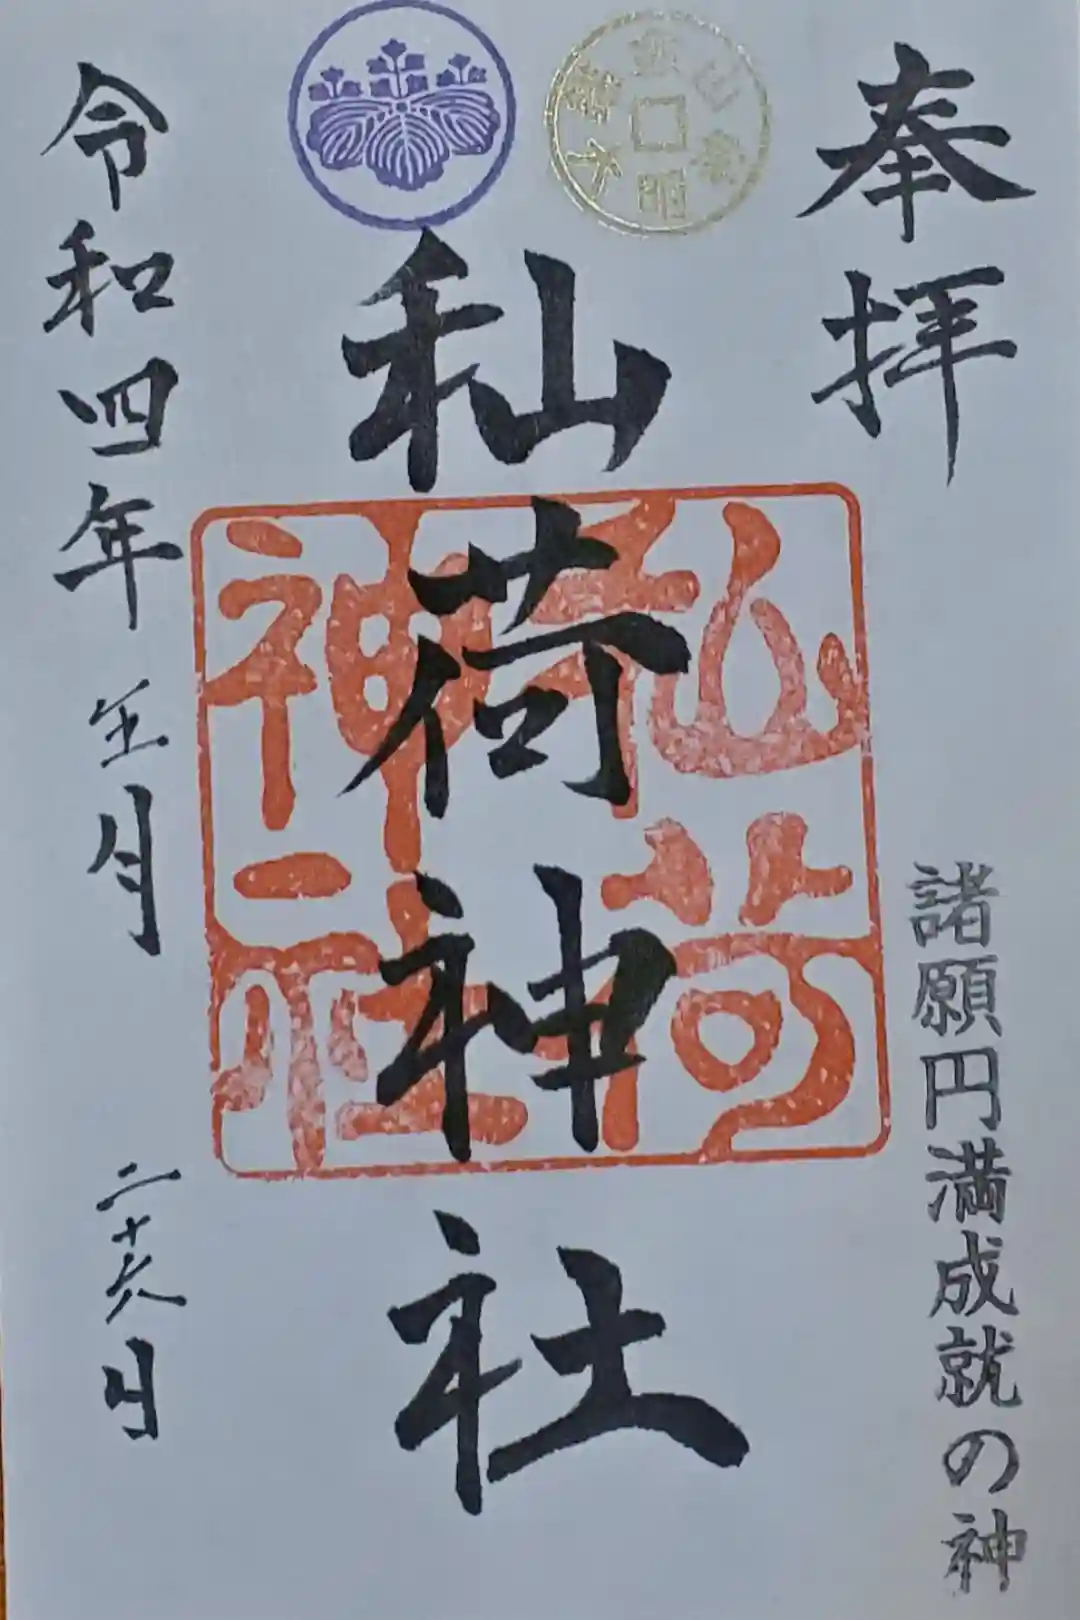 奉拝
諸願円満成就の神
秈荷神社
秈荷
神社
令和四年五月二十六日